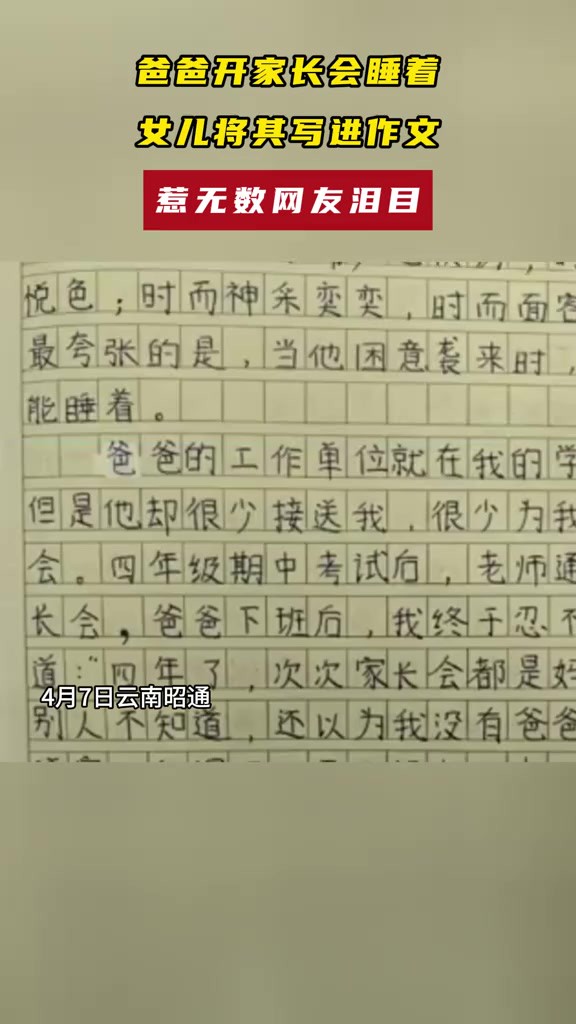 爸爸开家长会睡着
女儿将其写进作文
惹无数网友泪目
悦色；时而神采奕奕，时而面容
最夸张的是，当他困意袭来时，
能睡着。
爸爸的工作单位就在我的学
但是他却很少接送我，很少为我
会。四年级期中考试后，老师通
长会，爸爸下班后，我终于忍不
道：“四年了，次次家长会都是妈
4月7日云南昭通
别人不知道，还以为我没有爸爸